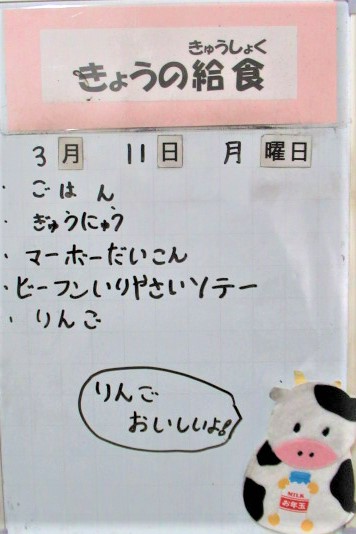 きゅうしょく
きょうの給食
3月 11日 月曜日
・ごはん
・ぎゅうにゅう
・マーボーだいこん
・ビーフンいりやさいソテー
・りんご
りんご
おいしいよ
MILK
お年玉